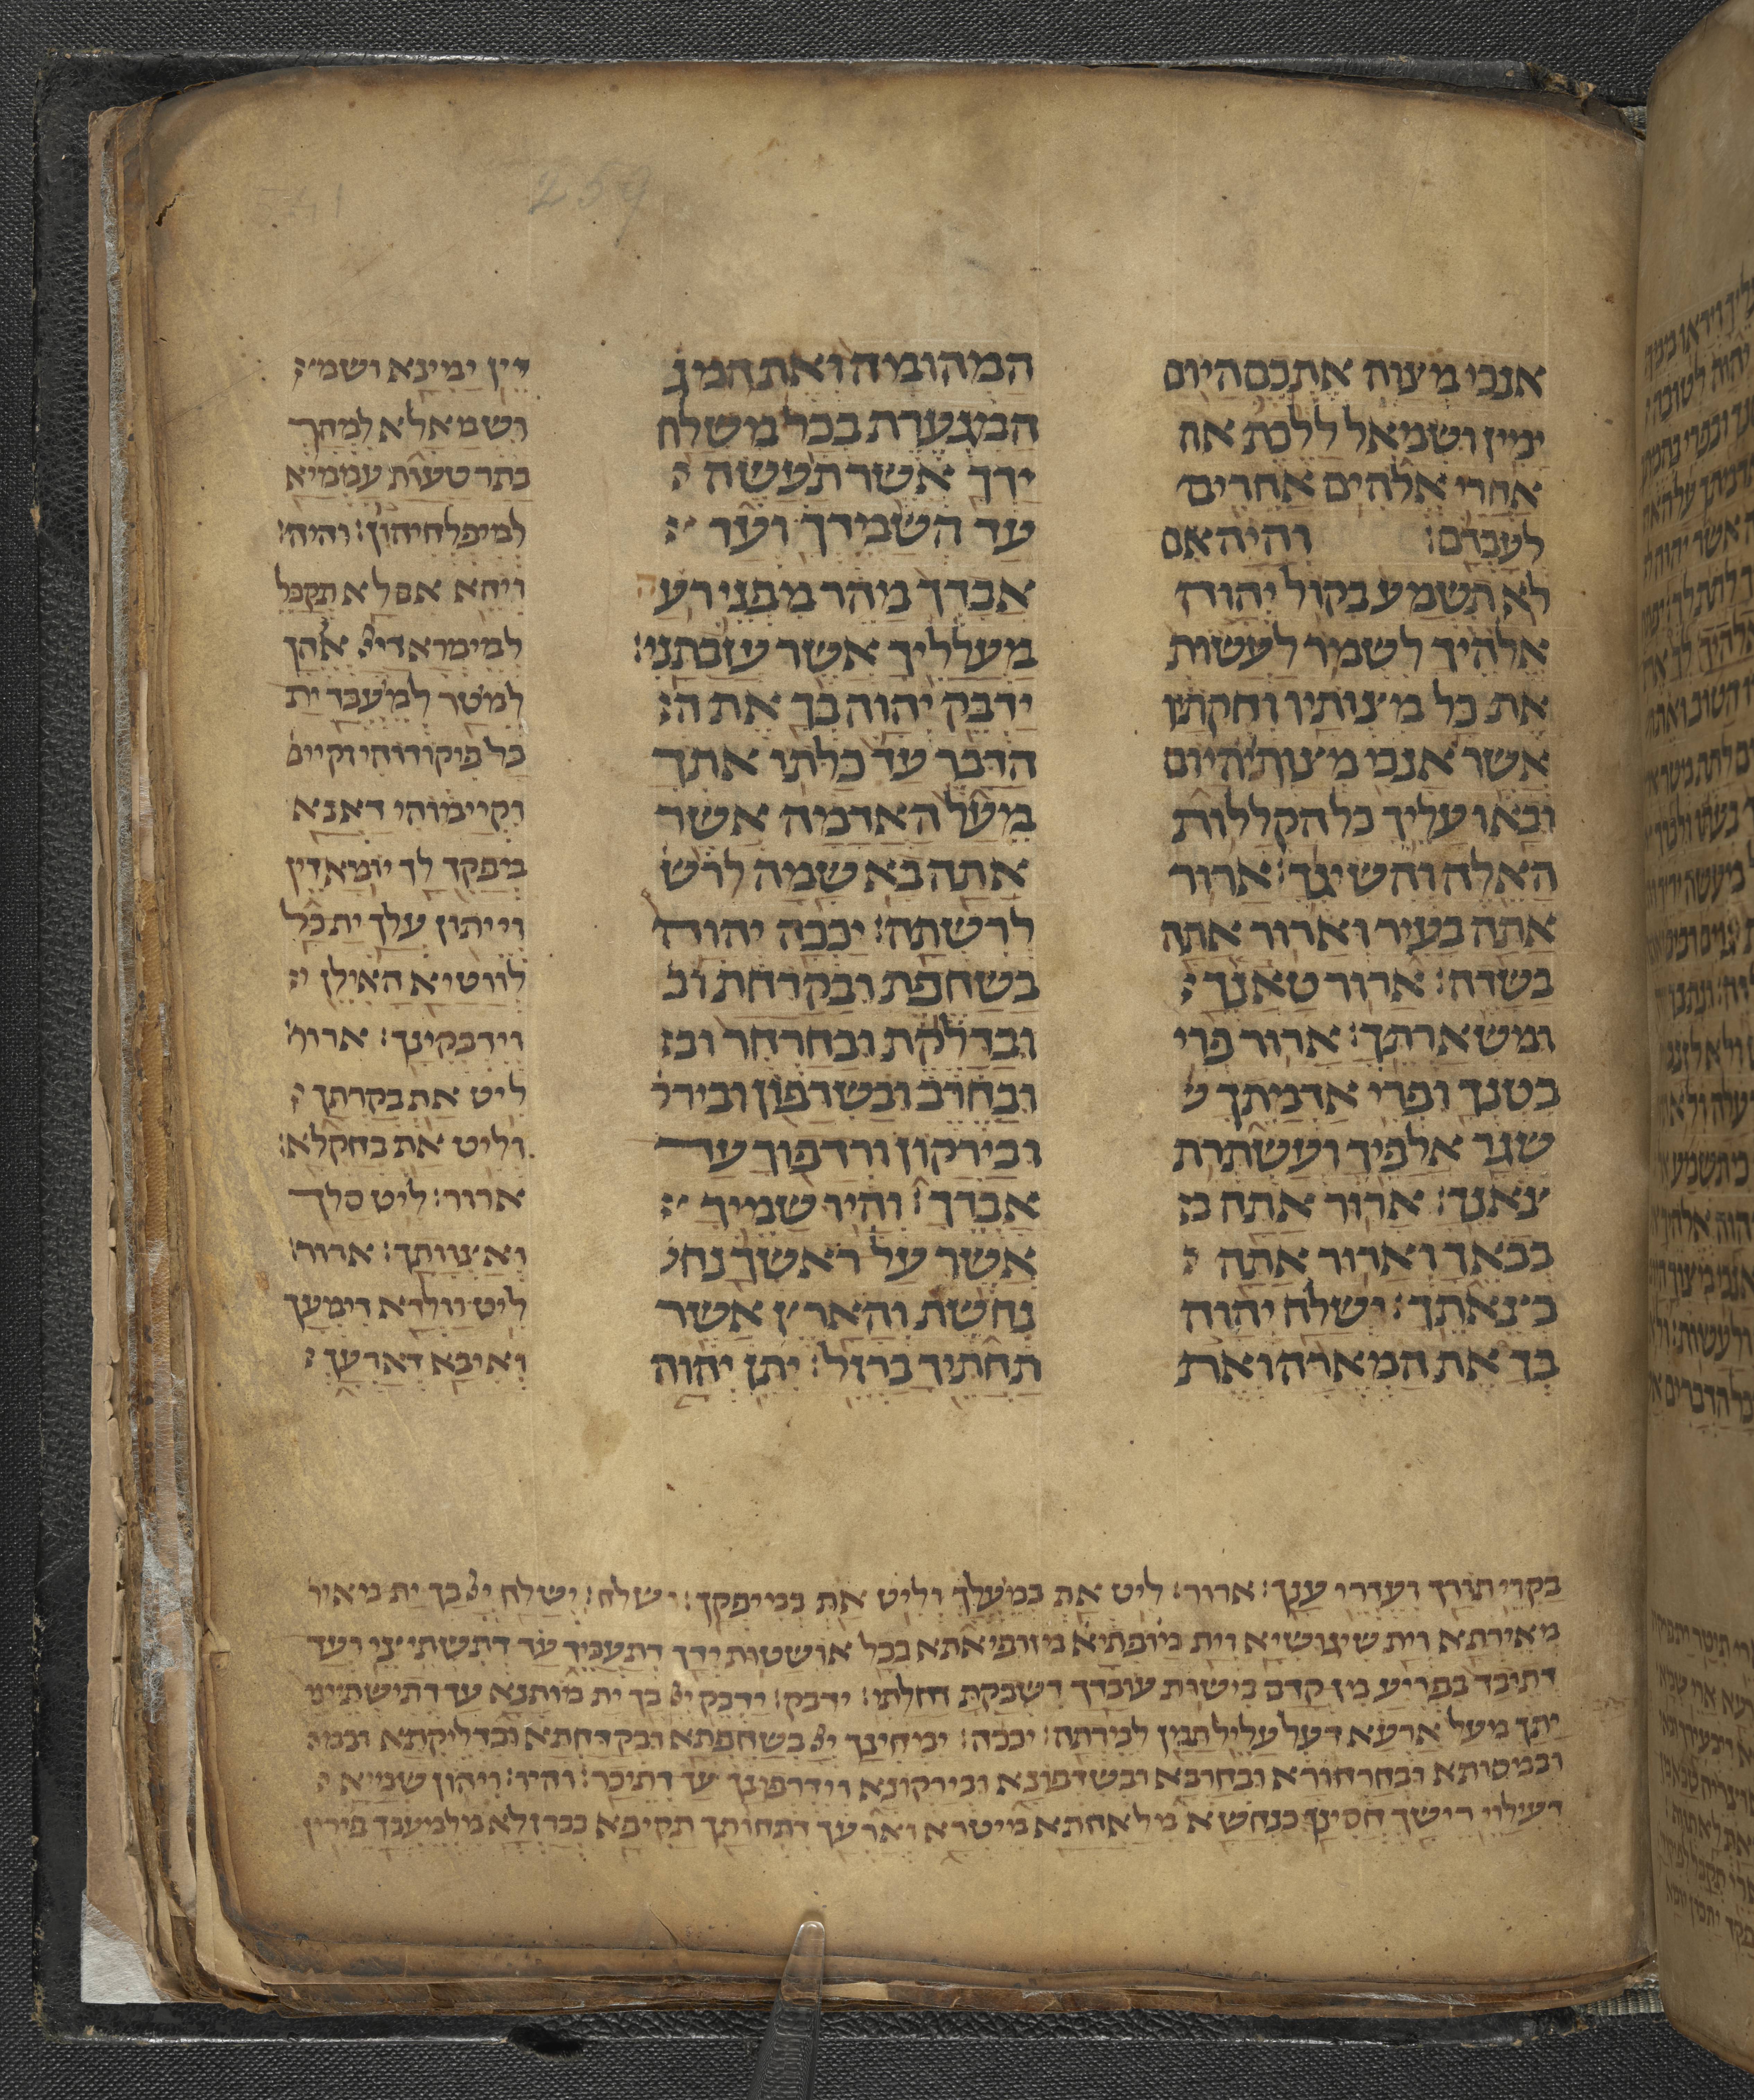 259
אנכי מצוה אתכם היום
ימין ושמאל ללכת אח
אחרי אלהים אחרים
לעבדם: והיה אם
לא תשמע בקול יהוה
אלהיך לשמר לעשות
את כל מצותיו וחקתיו
אשר אנכי מצוך היום
ובאו עליך כל הקללות
האלה והשיגוך: ארור
אתה בעיר וארור אתה
בשדה: ארור טנאך
ומשארתך: ארור פרי
בטנך ופרי אדמתך ש
שגר אלפיך ועשתרת
צאנך: ארור אתה ב
בבאך וארור אתה
בצאתך: ישלח יהוה
בך את המארה ואת
המהומה ואת המג
המגערת בכל משלח
ידך אשר תעשה
עד השמדך ועד
אבדך מהר מפני רע
מעלליך אשר עזבתני:
ידבק יהוה בך את ה
הדבר עד כלתו אתך
מעל האדמה אשר
אתה בא שמה לרש
לרשתה: יככה יהוה
בשחפת ובקדחת וב
ובדלקת ובחרחר וב
ובחרב ובשדפון ובירק
ובירקון ורדפוך עד
אבדך: והיו שמיך
אשר על ראשך נח
נחשת והארץ אשר
תחתיך ברזל: יתן יהוה
דין ימינא ושמ
ושמאלא למהך
בתר טעות עממיא
למיפלחיהון: והיה:
ויהא אם לא תקבל
למימרא דיי אלהך
למטר למעבד ית
כל פיקודוהי וקיימ
וקיימוהי דאנא
מפקד לך יומא דין
וייתון עלך ית כל
לווטיא האילין
וידבקינך: ארור
ליט את בקרתך
וליט את בחקלא:
ארור: ליט סלך
ואצותך: ארור:
ליט וולדא דימעך
ואיבא דארעך
בקרי תורך ועדרי ענך: ארור: ליט את במעלך וליט את במיפקך: ישלח: ישלח יי בך ית מאיר
מאירתא וית שיגושיא וית מזופיתא בכל אושטות ידך דתעביד עד דתשתיצי ועד
דתיבד בפריע מן קדם בישות עובדך דשבקת דחלתי: ידבק: ידבק יי בך ית מותנא עד דתישתיצי
יתך מעל ארעא דעל עליל תמן למירתה: יככה: ימחינך יי בשחפתא ובקדחתא ובדליקתא
ובחרחורא ובחרבא ובשדפונא ובירקונא וירדפונך עד דתיבד: והיו: ויהון שמיא
דעילוי רישך חסינין כנחשא מלאחתא מיטרא וארעך דתחותך תקיפא כברזלא מלמעבד פירין